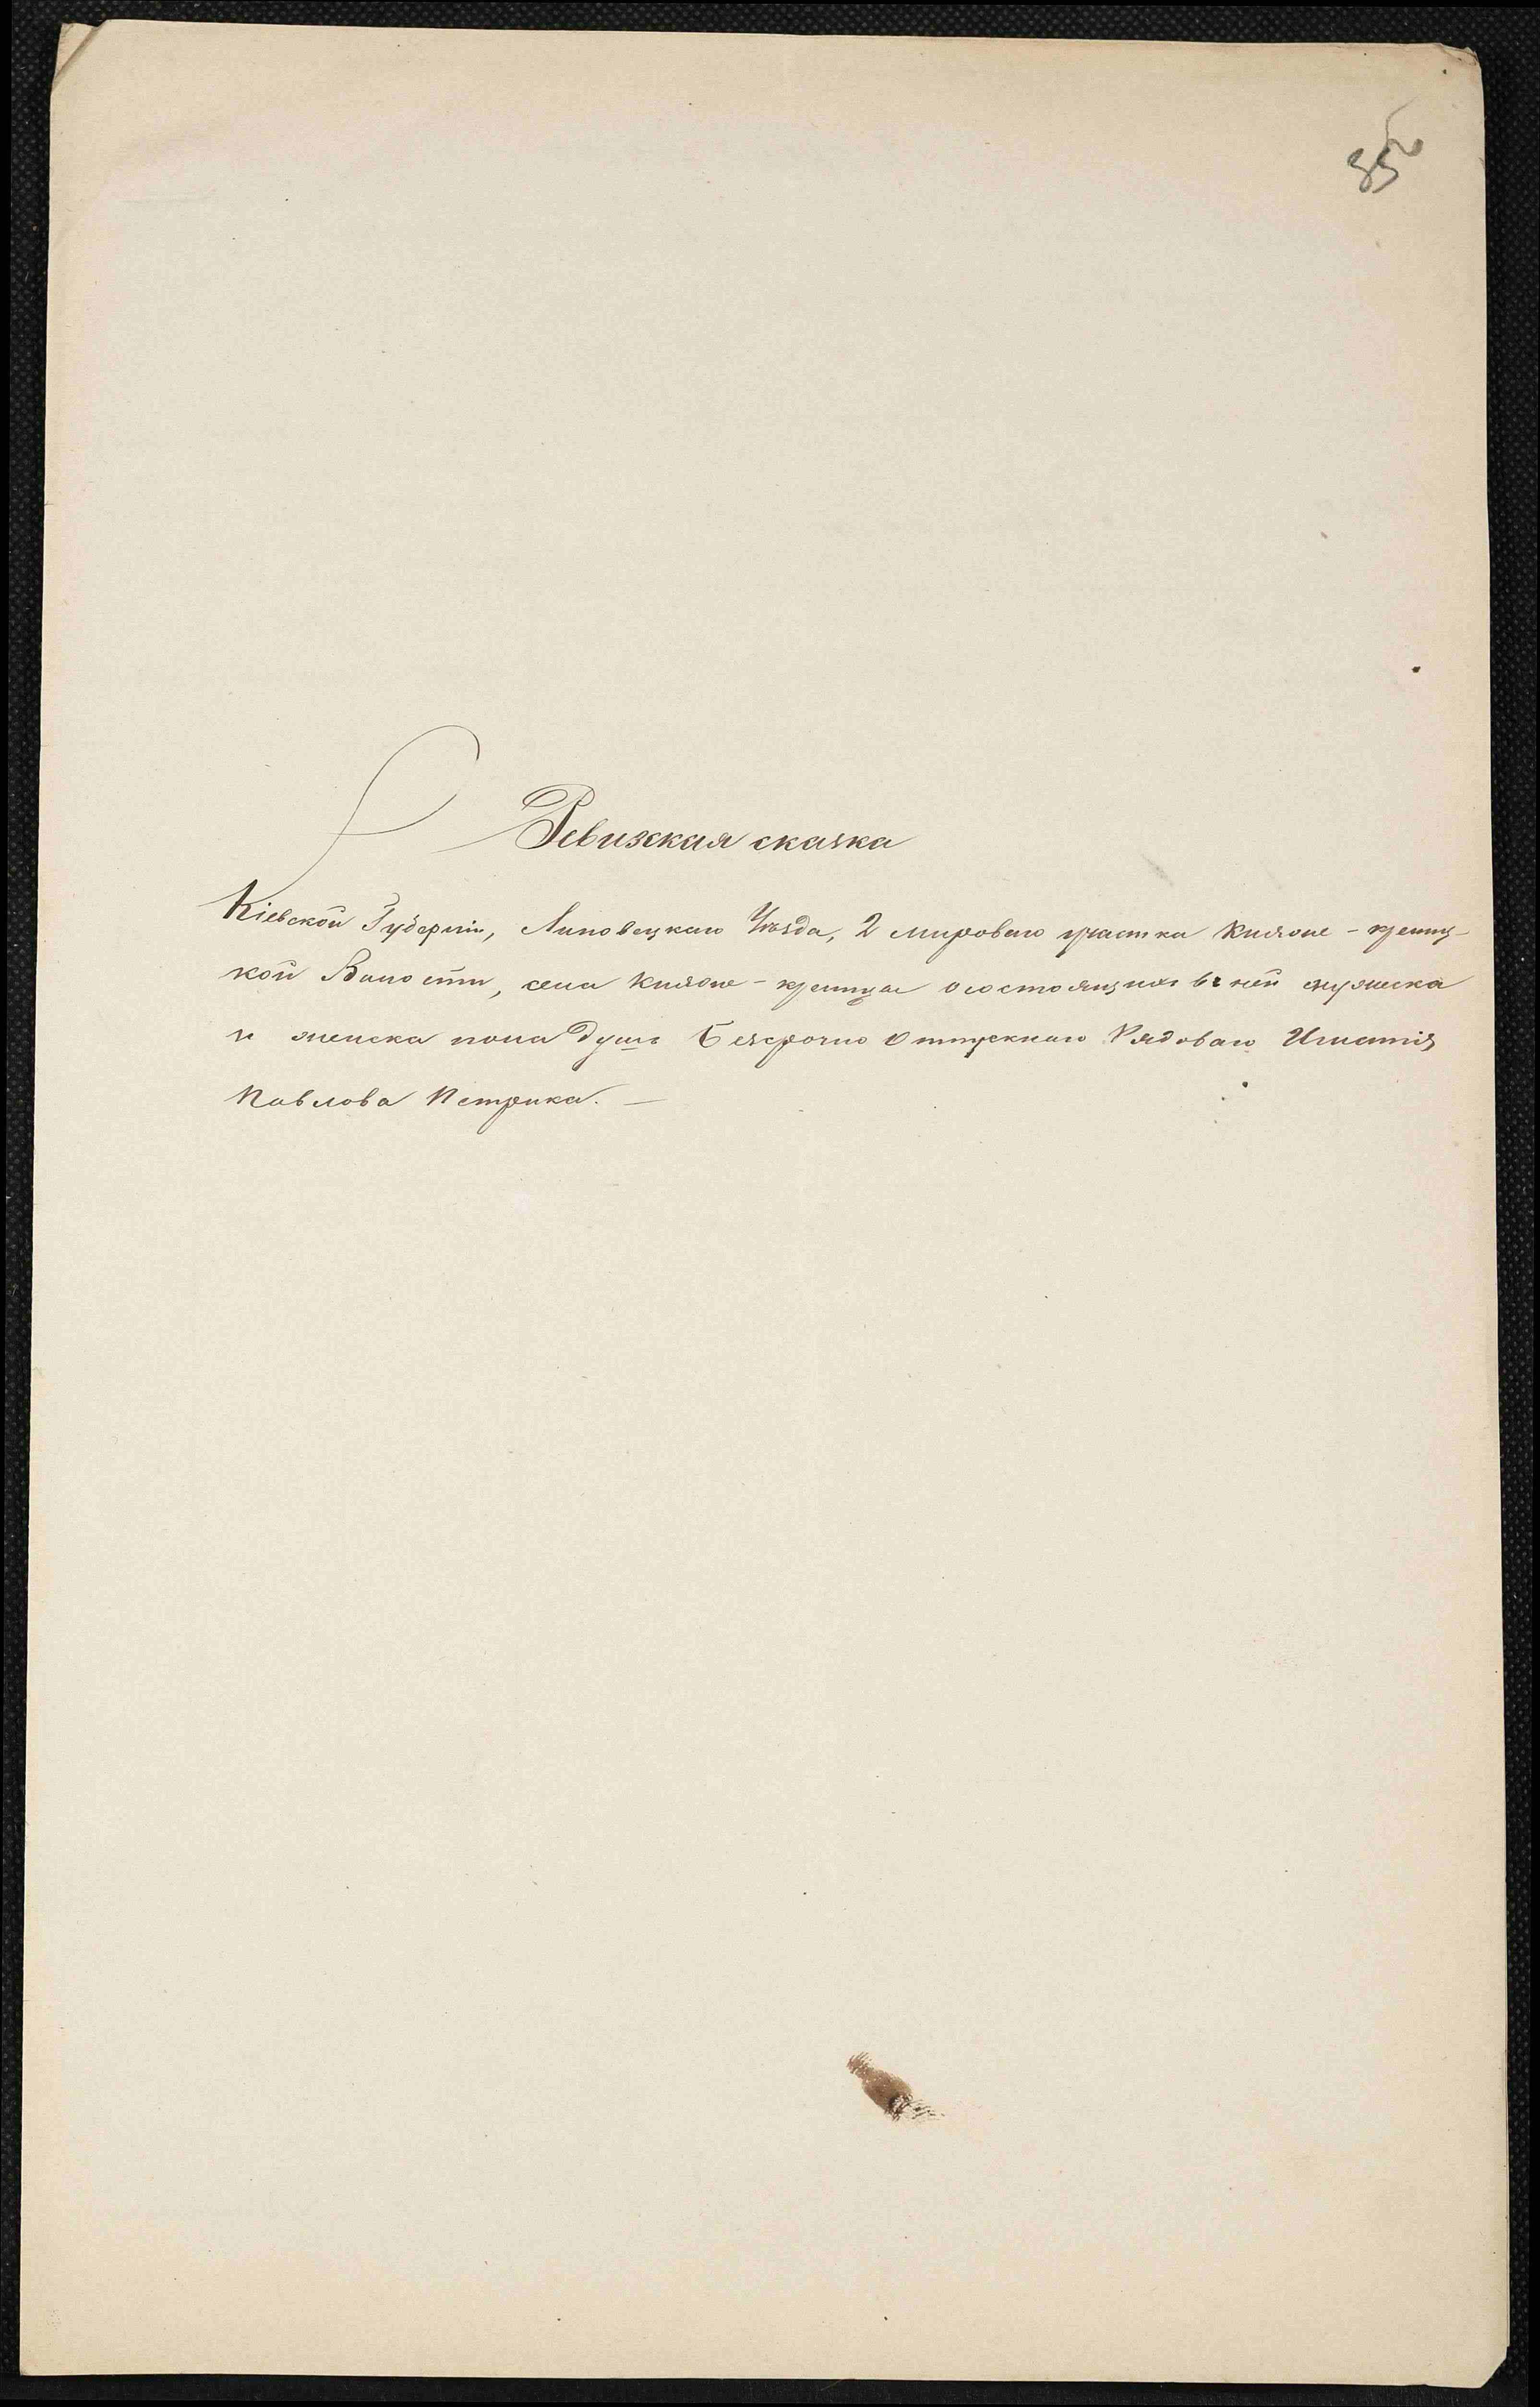 85
Ревижкая сказка
Кіевской Губерніи, Липовецкаго Уѣзда, 2 мироваго участка Княже-криниц-
кой Волости, села Княже-криница о состоящихъ въ ней мужеска
и женска пола душъ Безсрочно Отпускнаго Рядоваго Игнатія
Павлова Петрика. —